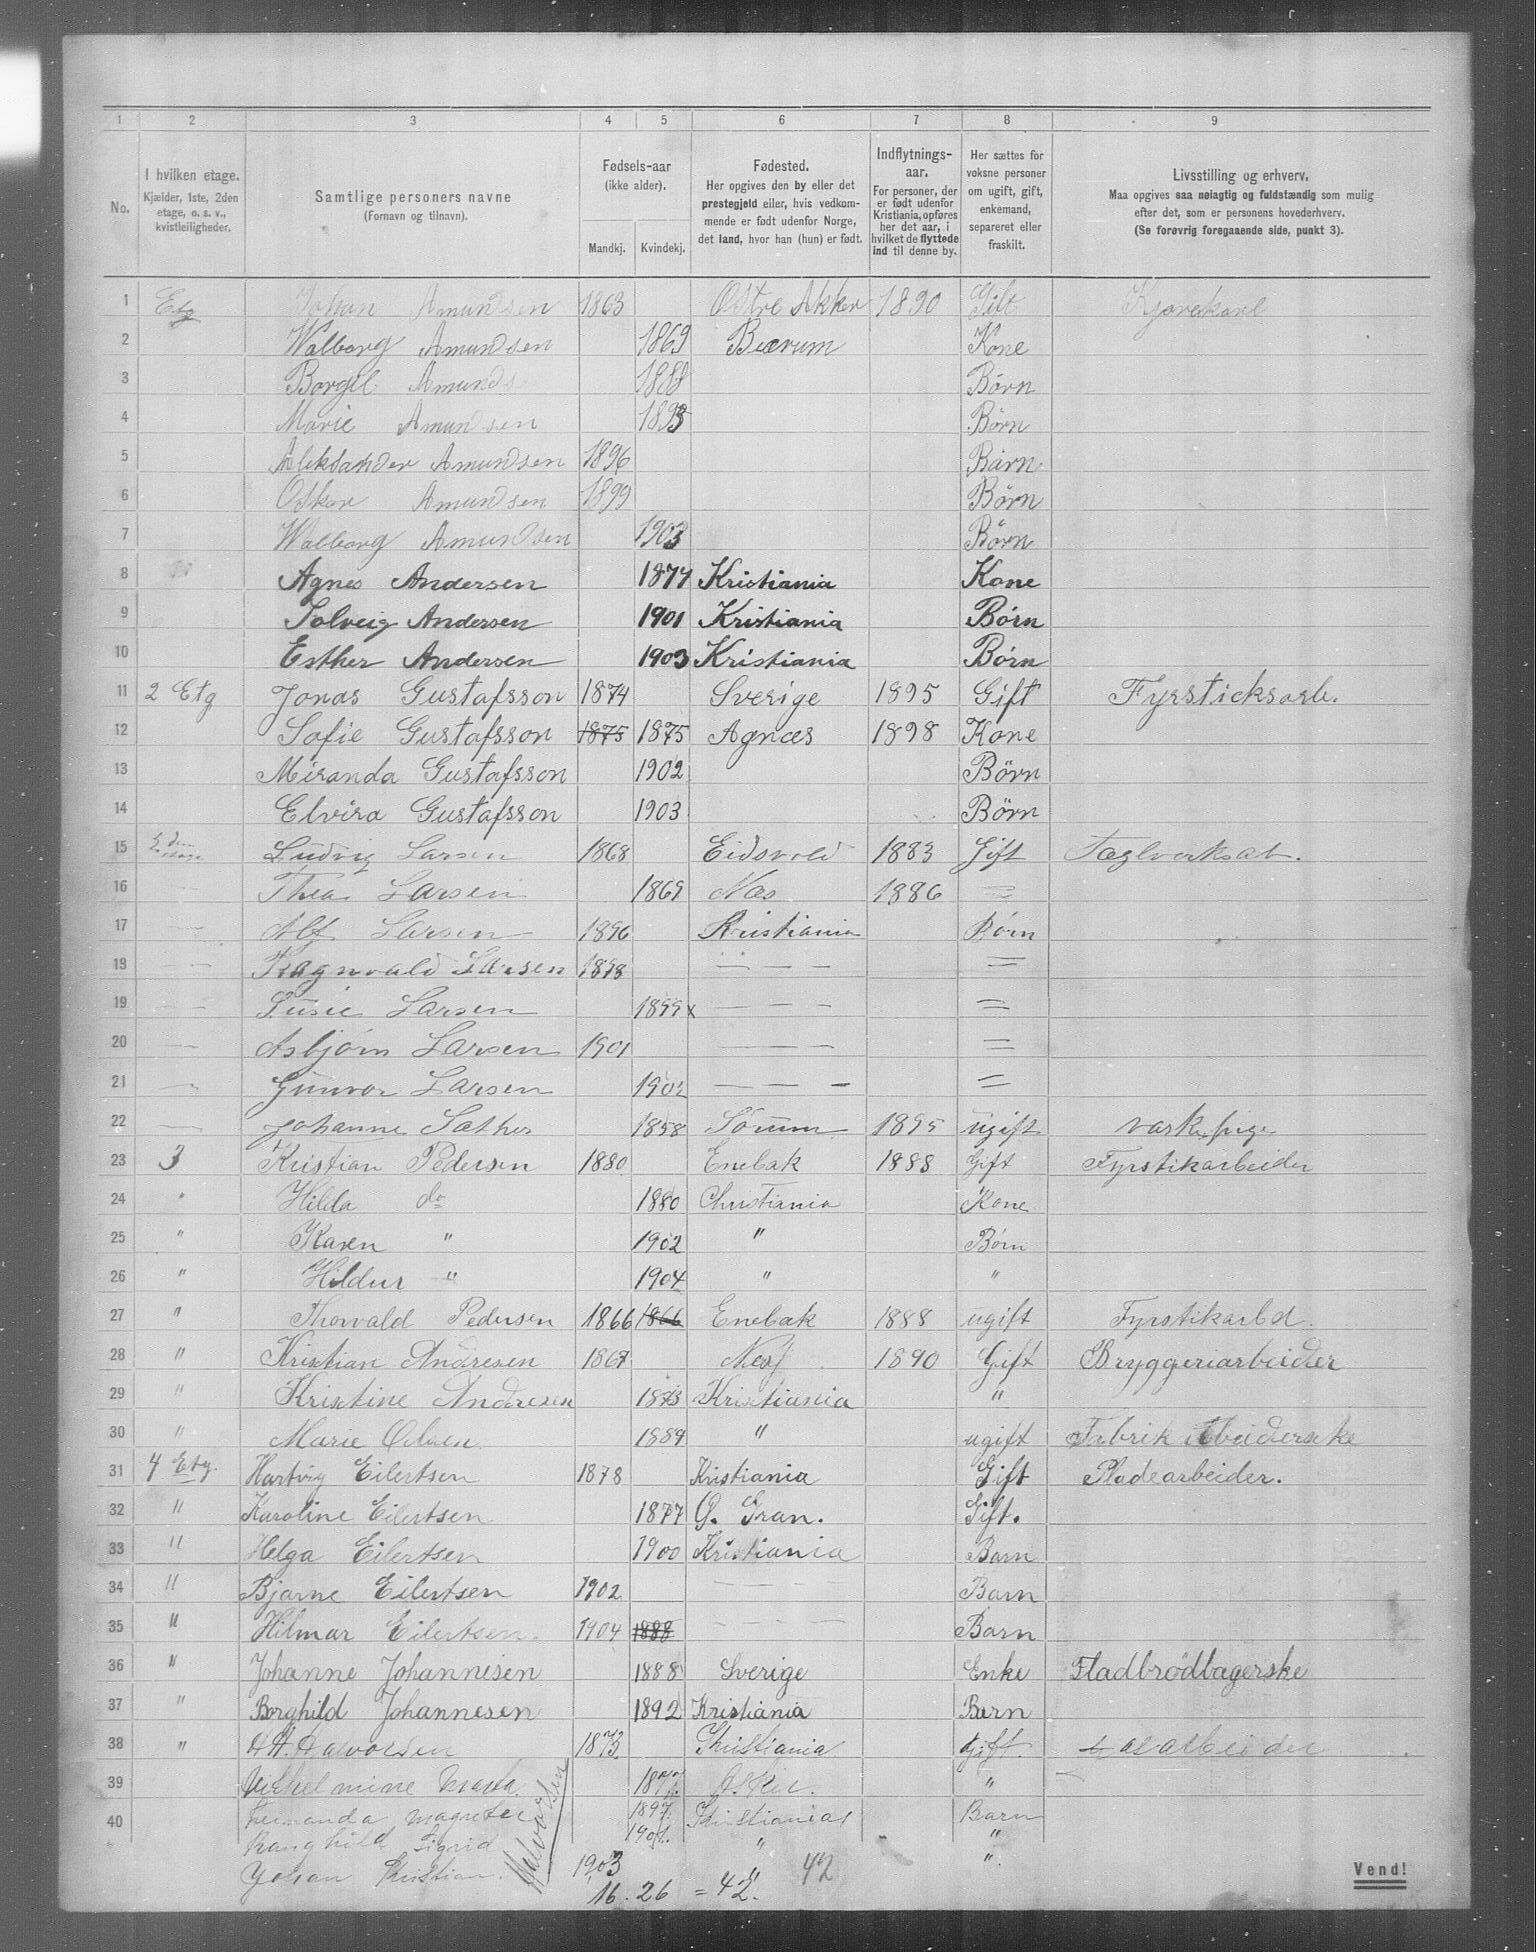 1 2 3 4 5 6 7 8 9
No. I hvilken etage. Kjælder, 1ste, 2den etage, o. s. v., kvistleiligheder. Samtlige personers navne (Fornavn og tilnavn). Fødsels-aar (ikke alder). Mandkj. Kvindekj. Fødested. Her opgives den by eller det prestegjeld eller, hvis vedkommende er født udenfor Norge, det land, hvor han (hun) er født. Indflytnings-aar. For personer, der er født udenfor Kristiania, opføres her det aar, i hvilket de flyttede ind til denne by. Her sættes for voksne personer om ugift, gift, enkemand, separeret eller fraskilt. Livsstilling og erhverv. Maa opgives saa nøiagtig og fuldstændig som mulig efter det, som er personens hovederhverv. (Se forøvrig foregaaende side, punkt 3).
1 Etg Johan Amundsen 1863 Østre Akker 1890 Gift Kjørekarl
2 Walborg Amundsen 1869 Bærum Kone
3 Borgil Amunds 1888 Børn
4 Marie Amundsen 1893 Børn
5 Aleksander Amundsen 1896 Børn
6 Oskar Amundsen 1899 Børn
7 Walborg Amundsen 1903 Børn
8 Agnes Andersen 1874 Kristiania Kone
9 Solveig Andersen 1901 Kristiania Børn
10 Esther Andersen 1903 Kristiania Børn
11 2 Etg Jonas Gustafsson 1874 Sverige 1895 Gift Fyrsticksarb.
12 Sofie Gustafsson 1875 1875 Agnæs 1898 Kone
13 Miranda Gustafsson 1902 Børn
14 Elvira Gustafsson 1903 Børn
15 2den etage Ludvig Larsen 1868 Eidsvold 1883 Gift Teglverksab.
16 — Thea Larsen 1869 Næs 1886 =
17 — Alf Larsen 1896 Kristiania Børn
19 — Ragnvald Larsen 1898 — — — =
19 — Susie Larsen 1899 x — — — =
20 — Asbjørn Larsen 1901 — — — =
21 — Gunvor Larsen 1902 — — — =
22 — Johanne Sæther 1858 Sørum 1895 ugift vaskepige
23 3 Kristian Pedersen 1880 Enebak 1888 Gift Fyrstikarbeider
24 " Hilda do 1880 Christiania Kone
25 " Karen " 1902 " Børn
26 " Hildur " 1904 " "
27 " Thorvald Pedersen 1866 1866 Enebak 1888 ugift Fyrstikarbd.
28 " Kristian Andresen 1867 Næs 1890 Gift Bryggeriarbeider
29 " Kristine Andresen 1873 Kristiania "
30 " Marie Olsen 1889 " ugift Fabrik arbeiderske
31 4 Etg. Hartvig Eilertsen 1878 Kristiania Gift Pladearbeider.
32 " Karoline Eilertsen 1877 G. Gran. Gift.
33 " Helga Eilertsen 1900 Kristiania Barn
34 " Bjarne Eilertsen 1902 — — — Barn
35 " Hilmar Eilertsen. 1904 1888 — — — Barn
36 " Johanne Johannesen 1888 Sverige Enke Fladbrödbagerske
37 " Borghild Johannesen 1892 Kristiania Barn
38 " A H. Halvorsen 1873 Kristiania Gift.
39 Vilhelmine 1877. Asker. "
40 Magrete 1897. Kristiania Barn
Ranghild Sigrid 1901. " "
Johan Kristian. Halvorsen 1903 " ".
16. 26 = 42. 42
Vend!